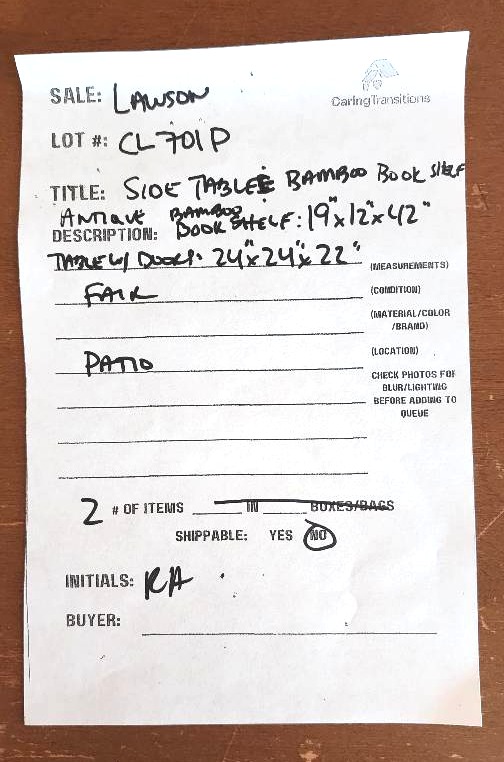 SALE: LAWSON
CaringTransitions
LOT #: CL701P
TITLE: SIDE TABLE & BAMBOO BOOK SHELF
ANTIQUE BAMBOO
DESCRIPTION: BOOK SHELF: 19"x12"x42"
TABLE W/ DOORS: 24"x24"x22"
(MEASUREMENTS)
FAIR (CONDITION)
(MATERIAL/COLOR
/BRAND)
PATIO (LOCATION)
CHECK PHOTOS FOR
BLUR/LIGHTING
BEFORE ADDING TO
QUEUE
2 # OF ITEMS ____ IN ____ BOXES/BAGS
SHIPPABLE: YES NO
INITIALS: RA
BUYER: